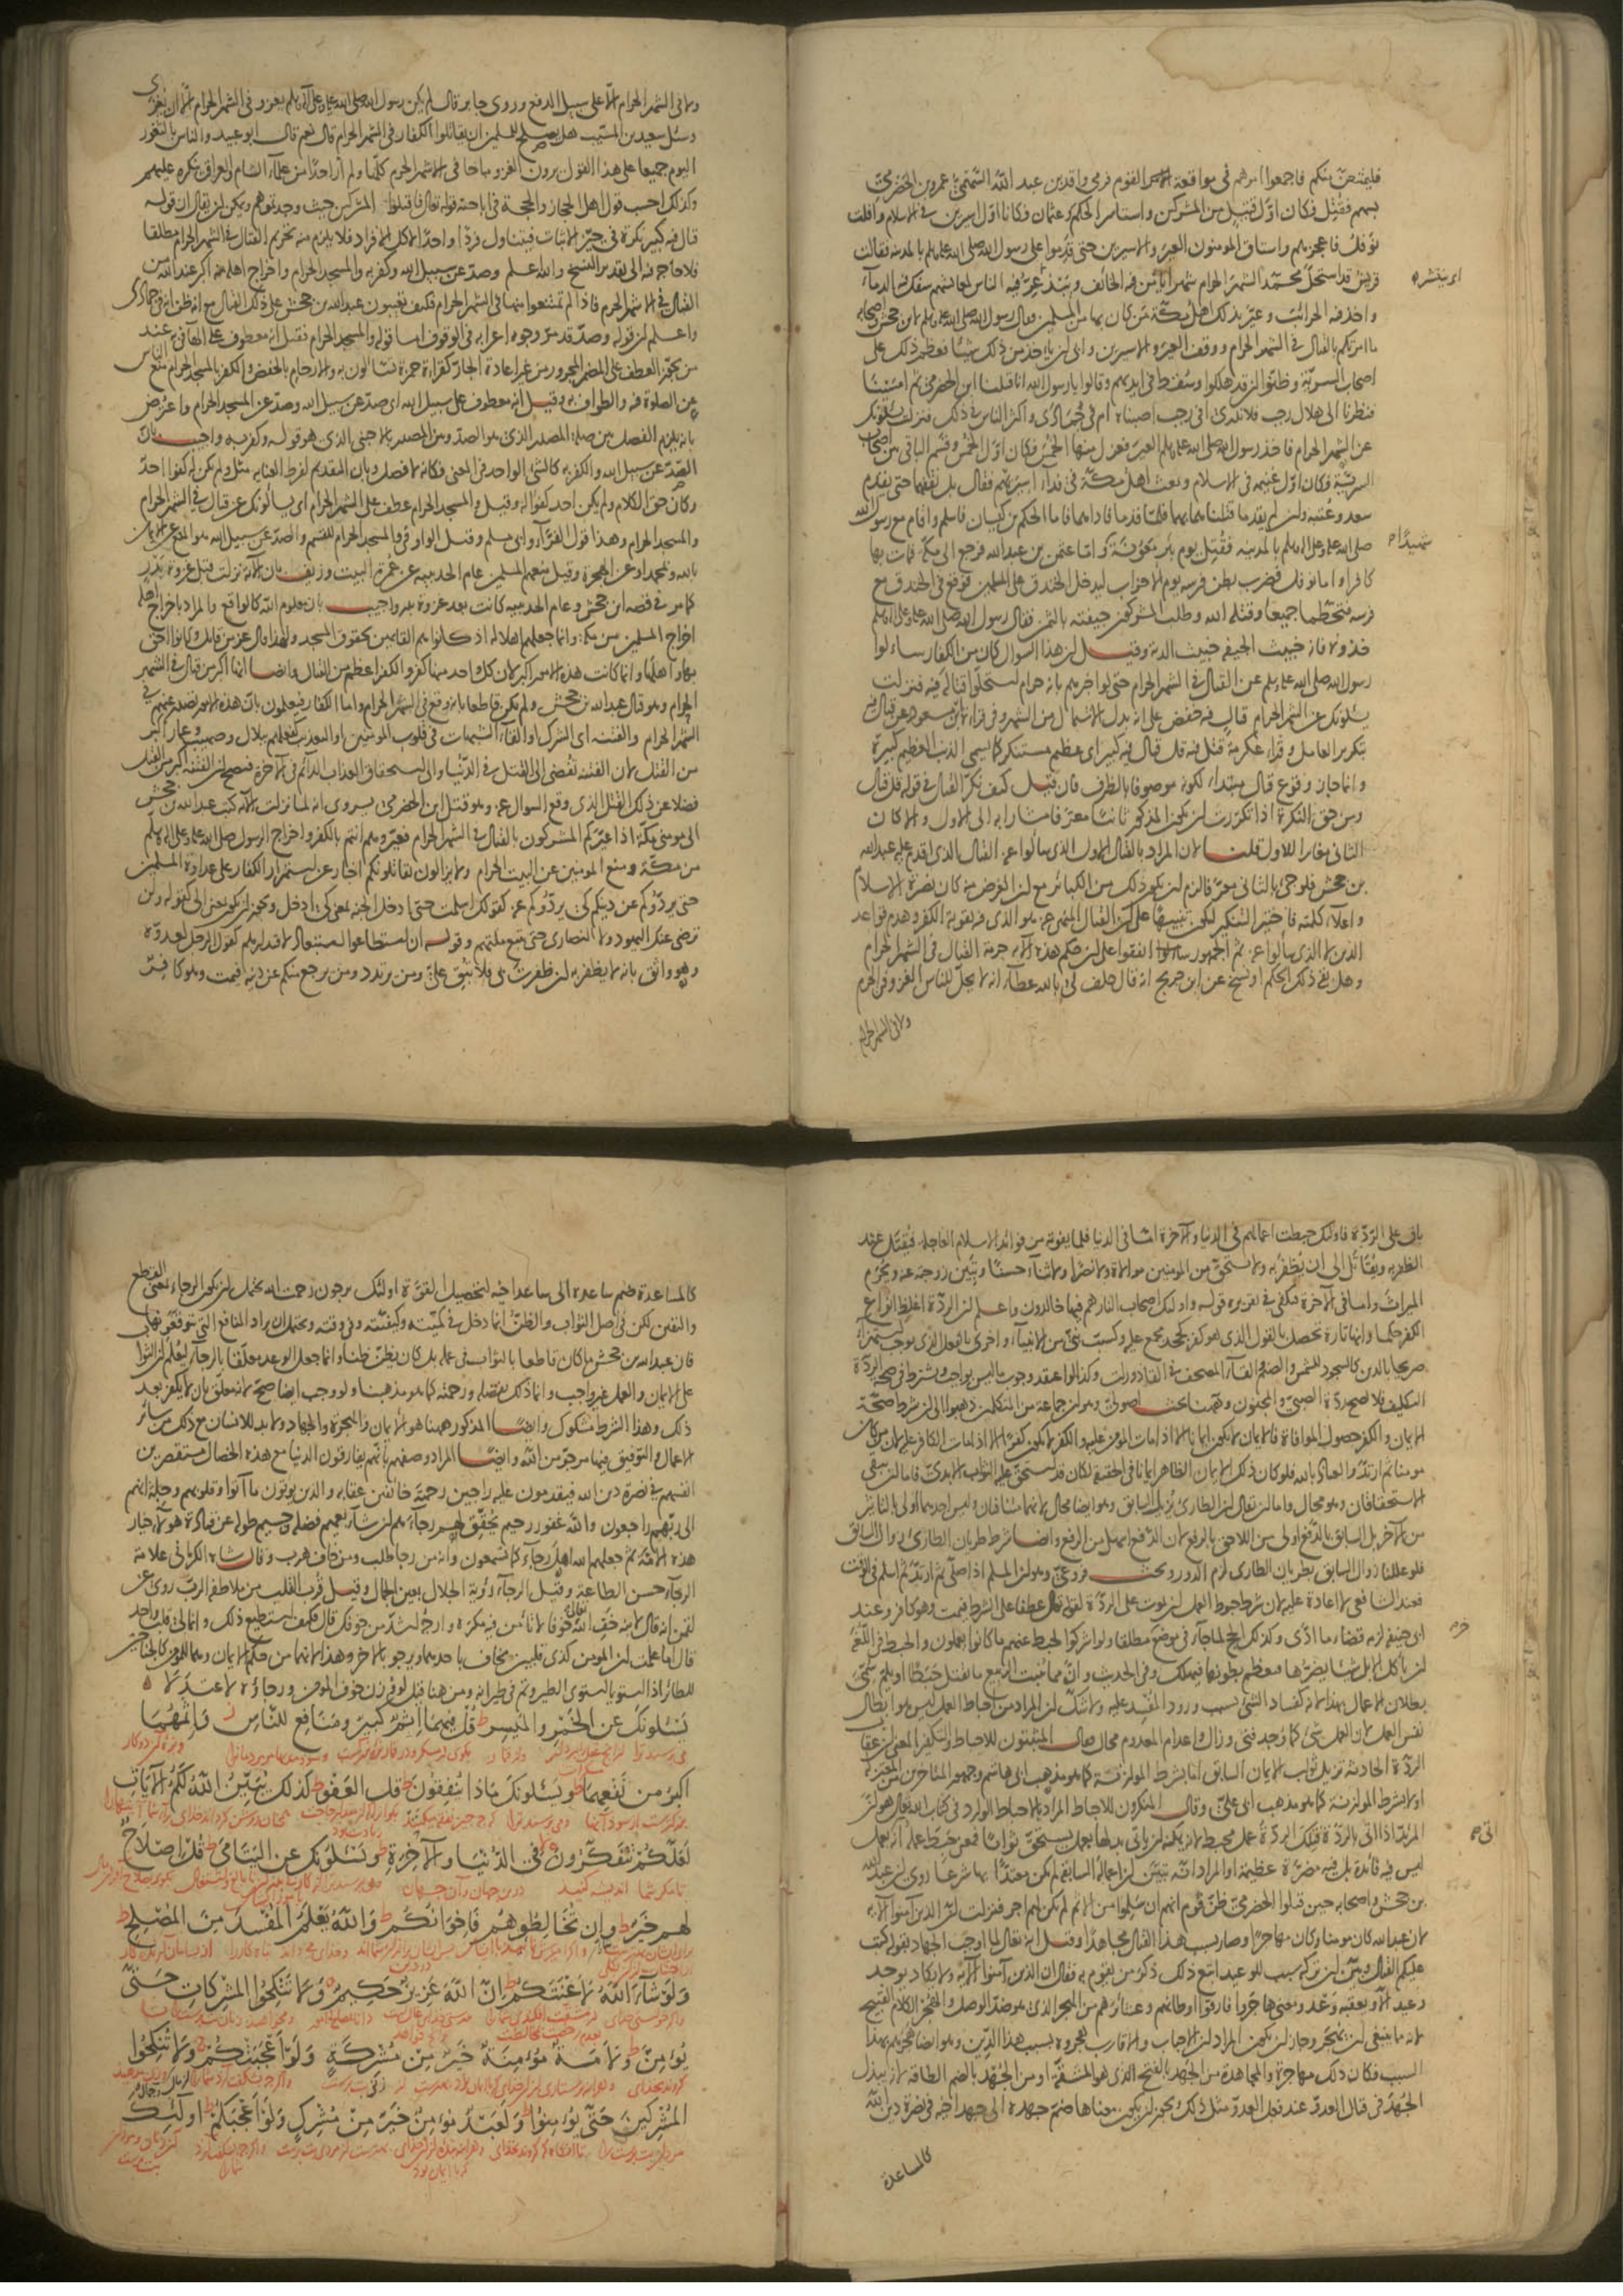 فليمتنعن منكم فاجمعوا امرهم في مواقعة القوم فرمى واقد بن عبد الله السهمي عمرو بن الحضرمي
بسهم فقتل فكان اوّل قتيل من المشركين واستاسر الحكم وعثمان فكانا اوّل اسيرين في الاسلام وافلت
نوفل فاعجزهم واستاق المؤمنون العير والاسيرين حتى قدموا على رسول الله صلى الله عليه وسلم بالمدينة فقالت
قريش قد استحل محمّد الشهر الحرام شهرا يأمن فيه الخائف ويبذعرّ فيه الناس لمعايشهم سفك فيه الدماء
واخذ فيه الحرائب وعيّر بذلك اهل مكّة من كان بها من المسلمين وقال رسول الله صلى الله عليه وسلم لابن جحش واصحابه
ما امرتكم بالقتال في الشهر الحرام ووقف العير والاسيرين وابى ان ياخذ من ذلك شيئا فعظم ذلك على
اصحاب السريّة وظنّوا ان قد هلكوا وسقط في ايديهم وقالوا يا رسول الله انا قتلنا ابن الحضرمي ثم امسينا
فنظرنا الى هلال رجب فلا ندرى افى رجب اصبناه ام فى جمادى واكثر الناس في ذلك فنزلت يسئلونك
عن الشهر الحرام فاخذ رسول الله صلى الله عليه وسلم العير فعزل منها الخمس فكان اوّل خمس وقسم الباقي بين اصحاب
السريّة فكان اوّل غنيمة في الاسلام وبعث اهل مكّة في فداء اسيريهم فقال بل نقفهما حتى يقدم
سعد وعتبة وان لم يقدما قتلناهما بهما فلمّا قدما فاداهما فاما الحكم بن كيسان فاسلم واقام مع رسول الله
صلى الله عليه وعلى آله وسلم بالمدينة فقتل يوم بئر معونة واما عثمن بن عبد الله فرجع الى مكة فمات بها
كافرا واما نوفل فضرب بطن فرسه يوم الاحزاب ليدخل الخندق على المسلمين فوقع فى الخندق مع
فرسه فتحطّما جميعا وقتله الله وطلب المشركون جيفته بالثمن فقال رسول الله صلى الله عليه وعلى آله وسلم
خذوه فانه خبيث الجيفة خبيث الدية وقيل ان هذا السؤال كان من الكفار ساءلوا
رسول الله صلى الله عليه وسلم عن القتال في الشهر الحرام حتى لو اخبرهم بانه حرام استحلّوا قتاله فيه فنزلت
يسئلونك عن الشهر الحرام قتال فيه خفض على انه بدل الاشتمال من الشهر وفي قراءة ابن مسعود عن قتال فيه
بتكرير العامل وقراء عكرمة قتل فيه قل قتال فيه كبير اى عظيم مستنكر كما يسمى الذنب العظيم كبيرة
وانما جاز وقوع قتال مبتداء لكونه موصوفا بالظرف فان قيل كيف نكّر القتال في قوله قل قتال
ومن حق النكرة اذا تكررت ان يكون المذكور ثانيا معرّفا مشارا به الى الاول والا كان
الثاني مغايرا للاول قلنا لان المراد بالقتال الاول الذى سألوا عنه القتال الذى اقدم عليه عبد الله
بن جحش فلو جئ بالثانى معرّفا لزم ان يكون ذلك من الكبائر مع ان الغرض منه كان نصرة الاسلام
واعلاء كلمته فاختير التنكير ليكون تنبيها على ان القتال المنهى عنه هو الذى فيه تقوية الكفر وهدم قواعد
الدين لا الذى سألوا عنه ثم الجمهور اتفقوا على ان حكم هذه الآية حرمة القتال في الشهر الحرام
وهل بقى ذلك الحكم او نسخ عن ابن جريج انه قال حلف لى بالله عطاء انه لا يحلّ للناس الغزو فى الحرم
ولا في الشهر الحرام
ولا في الشهر الحرام الا على سبيل الدفع وروى جابر قال لم يكن رسول الله صلى الله عليه وعلى آله وسلم يغزو في الشهر الحرام الا ان يغزى
وسئل سعيد بن المسيّب هل يصلح للمسلمين ان يقاتلوا الكفار فى الشهر الحرام قال نعم قال ابو عبيد والناس بالثغور
اليوم جميعا على هذا القول يرون الغزو مباحا فى الاشهر الحرم كلّها ولم أر احدا من علماء الشام والعراق ينكره عليهم
وكذلك احسب قول اهل الحجاز والحجة فى اباحته قوله تعالى فاقتلوا المشركين حيث وجدتموهم ويمكن ان يقال ان قوله
قتال فيه كبير نكرة فى حيّز الاثبات فيتناول فردا واحدا لا كل الافراد فلا يلزم منه تحريم القتال فى الشهر الحرام مطلقا
فلا حاجة فيه الى تقدير النسخ والله اعلم وصدّ عن سبيل الله وكفر به والمسجد الحرام واخراج اهله منه اكبر عند الله من
القتال في الاشهر الحرم فاذا لم تمتنعوا منها فى الشهر الحرام فكيف تعيبون عبد الله بن جحش على ذلك القتال مع انه ظن انه في جمادى
واعلم ان قوله وصدّ قد مرّ وجوه اعرابه فى الوقوف اما قوله والمسجد الحرام فقيل انه معطوف على الهاء في به عند
من يجوّز العطف على المضمر المجرور من غير اعادة الجار كقراءة حمزة تساءلون به والارحام بالخفض والكفر بالمسجد الحرام منع الناس
عن الصلوة فيه والطواف به وقيل انه معطوف على سبيل الله اى صدّ عن سبيل الله وصدّ عن المسجد الحرام واعترض
بانه يلزم الفصل بين صلة المصدر الذى هو الصدّ وبين المصدر بالاجنبى الذى هو قوله وكفر به واجيب بان
الصّدّ عن سبيل الله والكفر به كالشئ الواحد فى المعنى فكانه لا فصل وبان التقديم لفرط العناية مثل ولم يكن له كفوا احد
وكان حق الكلام ولم يكن احد كفوا له وقيل والمسجد الحرام عطف على الشهر الحرام اى يسألونك عن قتال في الشهر الحرام
والمسجد الحرام وهذا قول الفرّاء وابى مسلم وقيل الواو فى والمسجد الحرام للقسم والصدّ عن سبيل الله هو المنع عن الايمان
بالله وبمحمد او عن الهجرة وقيل منعهم المسلمين عام الحديبية عن عمرة البيت وزيف بان الآية نزلت قبل غزوة بدر
كما مر في قصة ابن جحش وعام الحديبية كانت بعد غزوة بدر واجيب بان معلوم الله كالواقع والمراد باخراج اهله
اخراج المسلمين من مكة وانما جعلهم اهلا له اذ كانوا هم القائمين بحقوق المسجد ولهذا قال عز من قائل وكانوا احق
بها واهلها وانما كانت هذه الامور اكبر لان كل واحد منها كفر والكفر اعظم من القتال وايضا انها اكبر من قتال في الشهر
الحرام وهو قتال عبد الله بن جحش ولم يكن قاطعا بانه وقع فى الشهر الحرام واما الكفار فيعلمون بان هذه الامور تصدر عنهم في
الشهر الحرام والفتنة اى الشرك او القاء الشبهات فى قلوب المؤمنين او التعذيب كفعلهم ببلال وصهيب وعمار اكبر
من القتل لان الفتنة تفضى الى القتل فى الدنيا والى استحقاق العذاب الدائم فى الآخرة فيصح ان الفتنة اكبر من القتل
فضلا عن ذلك القتل الذى وقع السؤال عنه وهو قتل ابن الحضرمى يروى انه لما نزلت الآية كتب عبد الله بن جحش
الى مؤمنى مكّة اذا عيّركم المشركون بالقتال فى الشهر الحرام فعيّروهم انتم بالكفر واخراج الرسول صلى الله عليه وعلى آله وسلم
من مكة ومنع المؤمنين عن البيت الحرام ولا يزالون يقاتلونكم اخبار عن استمرار الكفار على عداوة المسلمين
حتى يردّوكم عن دينكم كى يردّوكم عنه كقولك اسلمت حتى ادخل الجنة بمعنى كى ادخل ويجوز ان يكون بمعنى الى كقوله ولن
ترضى عنك اليهود ولا النصارى حتى تتبع ملتهم وقوله ان استطاعوا استبعاد لاقتدارهم كقول الرجل لعدوّه
وهو واثق بانه لا يظفر به ان ظفرت بى فلا تبق علىّ ومن يرتدد ومن يرجع منكم عن دينه فيمت وهو كافر
باق على الردّة فاولئك حبطت اعمالهم فى الدنيا والآخرة امّا فى الدنيا فلما يفوته من فوائد الاسلام العاجلة فيقتل عند
الظفر به ويقاتل الى ان يظفر به ولا يستحق من المؤمنين موالاة ولا نصرا ولا ثناء حسنا وتبين زوجته عنه ويحرم
الميراث واما فى الآخرة فيكفى فى تقريره قوله واولئك اصحاب النار هم فيها خالدون واعلم ان الردّة اغلظ انواع
الكفر حكما وانها تارة تحصل بالقول الذى هو كفر كجحد مجمع عليه وكسبّ نبىّ من الانبياء واخرى بالفعل الذى يوجب استهزاء
صريحا بالدين كالسجود للشمس والصنم والقاء المصحف في القاذورات وكذا لو اعتقد وجوب ما ليس بواجب ويشترط فى صحة الردّة
التكليف فلا تصح ردّة الصبىّ والمجنون وههنا بحث اصولىّ وهو ان جماعة من المتكلمين ذهبوا الى ان شرط صحّة
الايمان والكفر حصول الموافاة فالايمان لا يكون ايمانا الا اذا مات المؤمن عليه والكفر لا يكون كفرا الا اذا مات الكافر عليه لان من كان
مؤمنا ثم ارتدّ والعياذ بالله فلو كان ذلك الايمان الظاهر ايمانا فى الحقيقة لكان قد استحق عليه الثواب الابدىّ فاما ان يبقى
الاستحقاقان وهو محال واما ان يقال ان الطارى يزيل السابق وهو ايضا محال لانهما متنافيان وليس احدهما اولى بالتاثير
من الآخر بل السابق بالدفع اولى من اللاحق بالرفع لان الدفع اسهل من الرفع وايضا شرط طريان الطارى زوال السابق
فلو عللنا زوال السابق بطريان الطارى لزم الدور وبحث فروعىّ وهو ان المسلم اذا صلّى ثم ارتدّ ثم اسلم فى الوقت
فعند الشافعى لا اعادة عليه لان شرط حبوط العمل ان يموت على الردّة لقوله تعالى عطفا على الشرط فيمت وهو كافر وعند
ابى حنيفة لزمه قضاء ما ادّى وكذلك الحج لما جاء فى موضع مطلقا ولو اشركوا لحبط عنهم ما كانوا يعملون والحبط فى اللغة
ان تأكل الابل شيئا يضرّها فتعظم بطونها فتهلك وفى الحديث وان مما ينبت الربيع ما يقتل حبطا او يلمّ سمّى
بطلان الاعمال بهذا لانه كفساد الشئ بسبب ورود المفسد عليه ولا شكّ ان المراد من احباط العمل ليس هو ابطال
نفس العمل لان العمل شئ كما وجد فنى وزال واعدام المعدوم محال فقال المثبتون للاحباط والتكفير المعنى ان عقاب
الردّة الحادثة يزيل ثواب الايمان السابق اما بشرط الموازنة كما هو مذهب ابى هاشم وجمهور المتاخرين من المعتزلة
او لا بشرط الموازنة كما هو مذهب ابى علىّ وقال المنكرون للاحباط المراد بالاحباط الوارد فى كتاب الله تعالى هو ان
المرتدّ اذا اتى بالردّة فتلك الردّة عمل محبط لانه يمكنه ان ياتى بدلها بعمل يستحق ثوابا فمعنى حبط عمله انه عمل
ليس فيه فائدة بل فيه مضرّة عظيمة او المراد انه تبيّن ان اعماله السابقة لم يكن معتدّا بها شرعا روى ان عبد الله
بن جحش واصحابه حين قتلوا الحضرمى ظنّ قوم انهم ان سلموا من الاثم لم يكن لهم اجر فنزلت انّ الذين آمنوا الآية
لان عبد الله كان مؤمنا وكان مهاجرا وصار بسبب هذا القتال مجاهدا وقيل انه تعالى لما اوجب الجهاد بقوله كتب
عليكم القتال وبيّن ان تركه سبب للوعيد اتبع ذلك ذكر من يقوم به فقال ان الذين آمنوا الآية ولا يكاد يوجد
وعيد الا ويعقبه وعد ومعنى هاجروا فارقوا اوطانهم وعشائرهم من الهجر الذى هو ضدّ الوصل والهجر الكلام القبيح
لانه مما ينبغى ان يهجر وجاز ان يكون المراد ان الاحباب والاقارب هجروه بسبب هذا الدّين وهو ايضا هجرهم بهذا
السبب فكان ذلك مهاجرة والمجاهدة من الجهد بالفتح الذى هو المشقّة او من الجهد بالضم الطاقة لانه يبذل
الجهد فى قتال العدوّ عند فعل العدوّ مثل ذلك ويجوز ان يكون معناها ضمّ جهده الى جهد اخيه فى نصرة دين الله
كالمساعدة
كالمساعدة ضم ساعده الى ساعد اخيه لتحصيل القوّة اولئك يرجون رحمت الله يحتمل ان يكون الرجاء بمعنى القطع
واليقين لكن فى اصل الثواب والظنّ انما دخل في كميّته وكيفيّته وفى وقته ويحتمل ان يراد المنافع التى يتوقعونها
فان عبد الله بن جحش ما كان قاطعا بالثواب فى عمله بل كان يظنّ ظنا وانما جعل الوعد معلّقا بالرجاء ليعلم ان الثواب
على الايمان والعمل غير واجب وانما ذلك بفضله ورحمته كما هو مذهبنا ولو وجب ايضا صحّ لانه معلق بان لا يكفر بعد
ذلك وهذا الشرط مشكوك وايضا المذكور ههنا هو الايمان والهجرة والجهاد ولا بد للانسان مع ذلك من سائر
الاعمال والتوفيق فيها مرجوّ من الله وايضا المراد وصفهم بانّهم يفارقون الدنيا مع هذه الخصال مستقصرين
انفسهم فى نصرة دين الله فيقدمون عليه راجين رحمته خائفين عقابه والذين يؤتون ما آتوا وقلوبهم وجلة انهم
الى ربّهم راجعون والله غفور رحيم يحقّق لهم رجاءهم ان شاء بعميم فضله وجسيم طوله عن قتادة هؤلاء خيار
هذه الامّة ثم جعلهم الله اهل رجاء كما تسمعون وانه من رجا طلب ومن خاف هرب وقال شاه الكرمانى علامة
الرجاء حسن الطاعة وقيل الرجاء رؤية الجلال بعين الجمال وقيل قرب القلب من ملاطفة الربّ روى عن
لقمن انه قال لابنه خف الله تعالى خوفا لا تأمن فيه مكره وارجه اشدّ من خوفك قال فكيف استطيع ذلك وانما لى قلب واحد
قال اما علمت ان المؤمن كذى قلبين يخاف باحدهما ويرجو بالآخر وهذا لانهما من حكم الايمان وهما للمؤمن كالجناحين
للطائر اذا استويا استوى الطير وتمّ في طيرانه ومن هنا قيل لو وزن خوف المؤمن ورجاؤه لاعتدلا
يَسْـَٔلُونَكَ عَنِ الْخَمْرِ وَالْمَيْسِرِ قُلْ فِيهِمَا إِثْمٌ كَبِيرٌ وَمَنَافِعُ لِلنَّاسِ وَإِثْمُهُمَا
أَكْبَرُ مِن نَّفْعِهِمَا وَيَسْـَٔلُونَكَ مَاذَا يُنفِقُونَ قُلِ الْعَفْوَ كَذَٰلِكَ يُبَيِّنُ اللَّهُ لَكُمُ الْآيَاتِ
لَعَلَّكُمْ تَتَفَكَّرُونَ فِي الدُّنْيَا وَالْآخِرَةِ وَيَسْـَٔلُونَكَ عَنِ الْيَتَامَىٰ قُلْ إِصْلَاحٌ
لَهُمْ خَيْرٌ وَإِن تُخَالِطُوهُمْ فَإِخْوَانُكُمْ وَاللَّهُ يَعْلَمُ الْمُفْسِدَ مِنَ الْمُصْلِحِ
وَلَوْ شَاءَ اللَّهُ لَأَعْنَتَكُمْ إِنَّ اللَّهَ عَزِيزٌ حَكِيمٌ وَلَا تَنكِحُوا الْمُشْرِكَاتِ حَتَّىٰ
يُؤْمِنَّ وَلَأَمَةٌ مُّؤْمِنَةٌ خَيْرٌ مِّن مُّشْرِكَةٍ وَلَوْ أَعْجَبَتْكُمْ وَلَا تُنكِحُوا
الْمُشْرِكِينَ حَتَّىٰ يُؤْمِنُوا وَلَعَبْدٌ مُّؤْمِنٌ خَيْرٌ مِّن مُّشْرِكٍ وَلَوْ أَعْجَبَكُمْ أُولَٰئِكَ